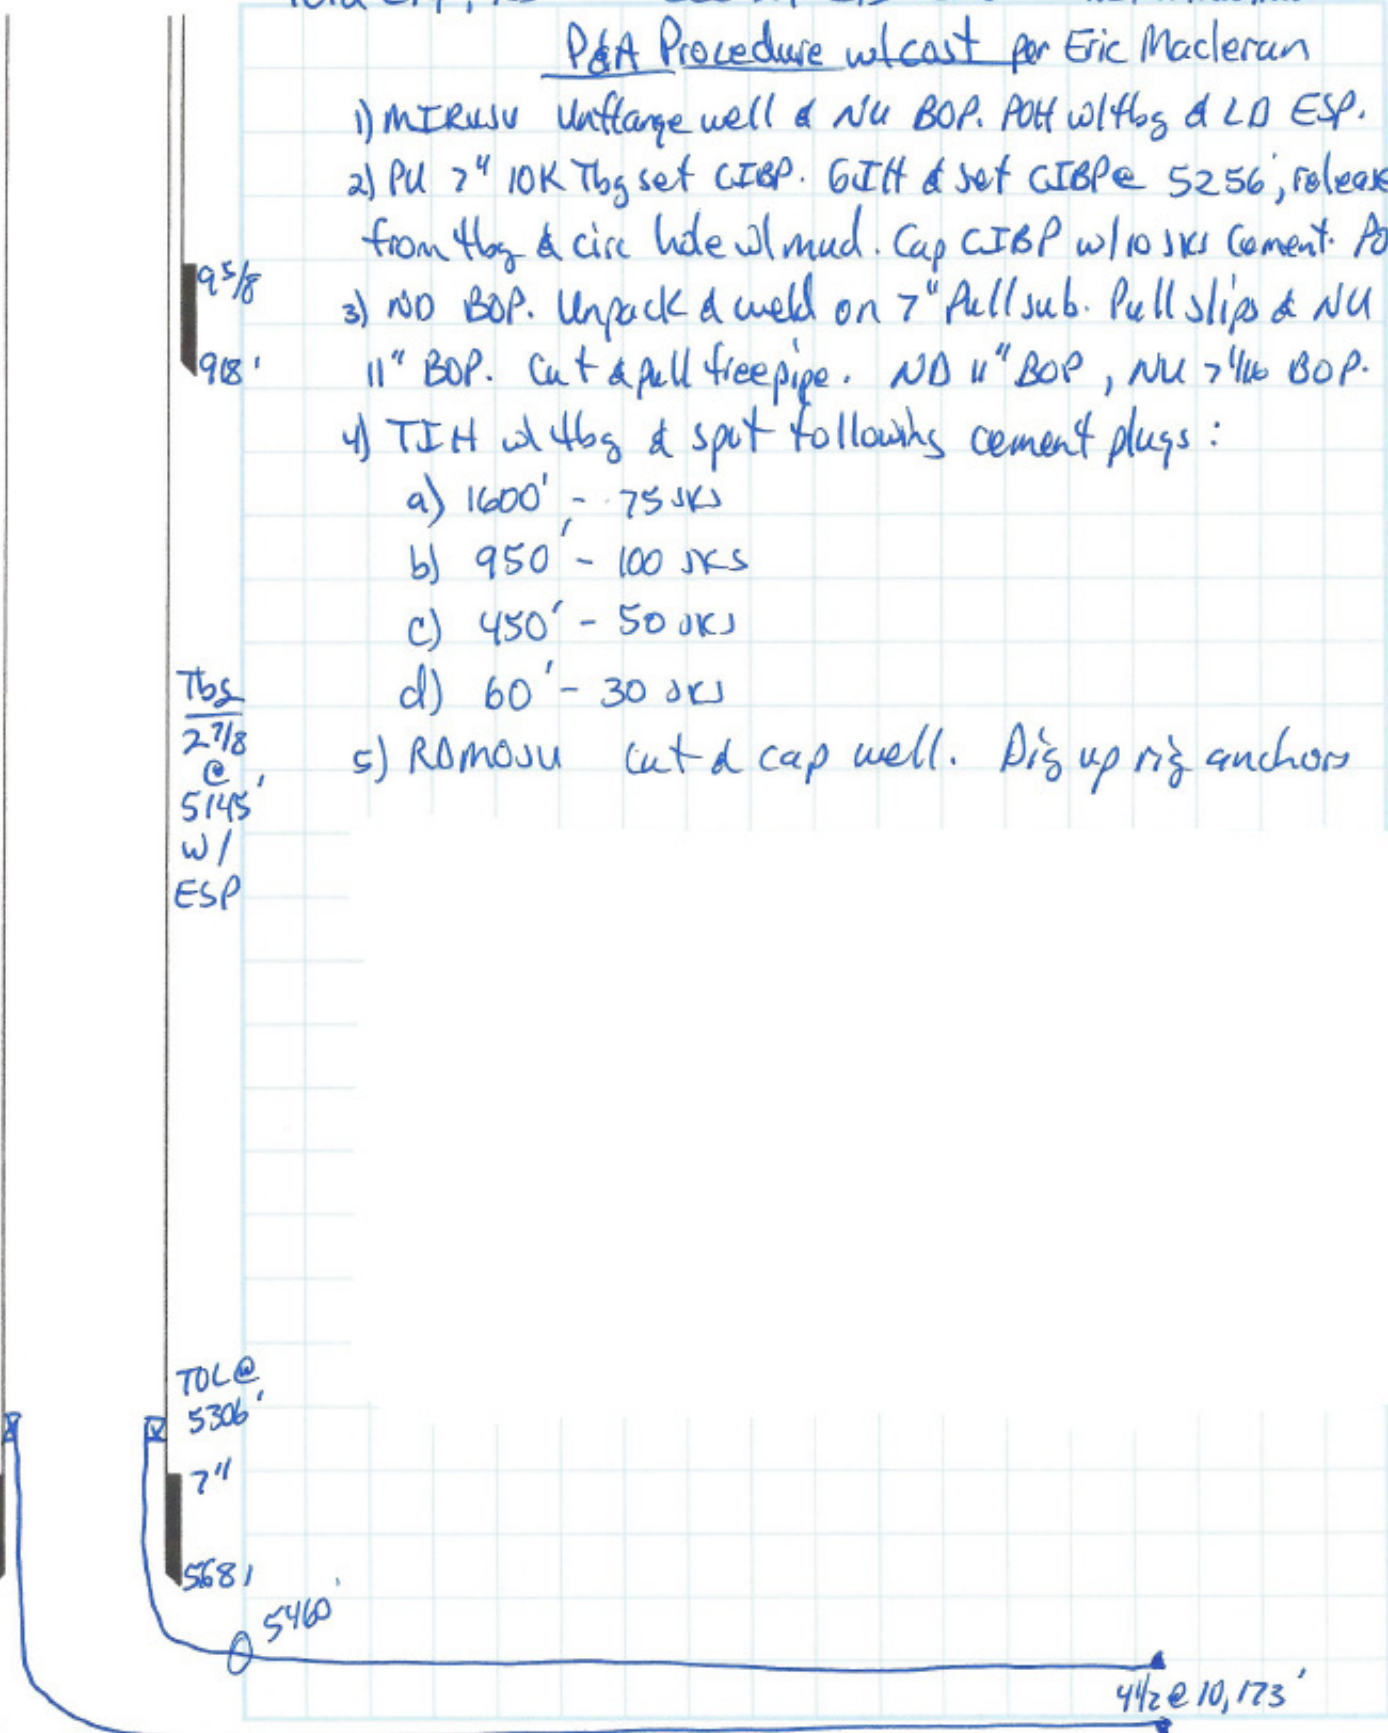 P&A Procedure w/cost per Eric Macleran
1) MIRUSU Unflange well & NU BOP. POH w/tbg & LD ESP.
2) PU 7" 10K Tbg set CIBP. GIH & set CIBP @ 5256', release
from tbg & circ hole w/ mud. Cap CIBP w/10 sks Cement. PO
3) ND BOP. Unpack & weld on 7" Pull sub. Pull slips & NU
11" BOP. Cut & pull free pipe. ND 11" BOP, NU 7 1/16 BOP.
4) TIH w/ tbg & spot following cement plugs:
a) 1600' - 75 sks
b) 950' - 100 sks
c) 450' - 50 sks
d) 60' - 30 sks
5) RDMOSU Cut & cap well. Dig up rig anchors
9 5/8
918'
Tbg
2 7/8
@
5145'
w/
ESP
TOL @
5306'
7"
5681
5460'
4 1/2 @ 10,173'